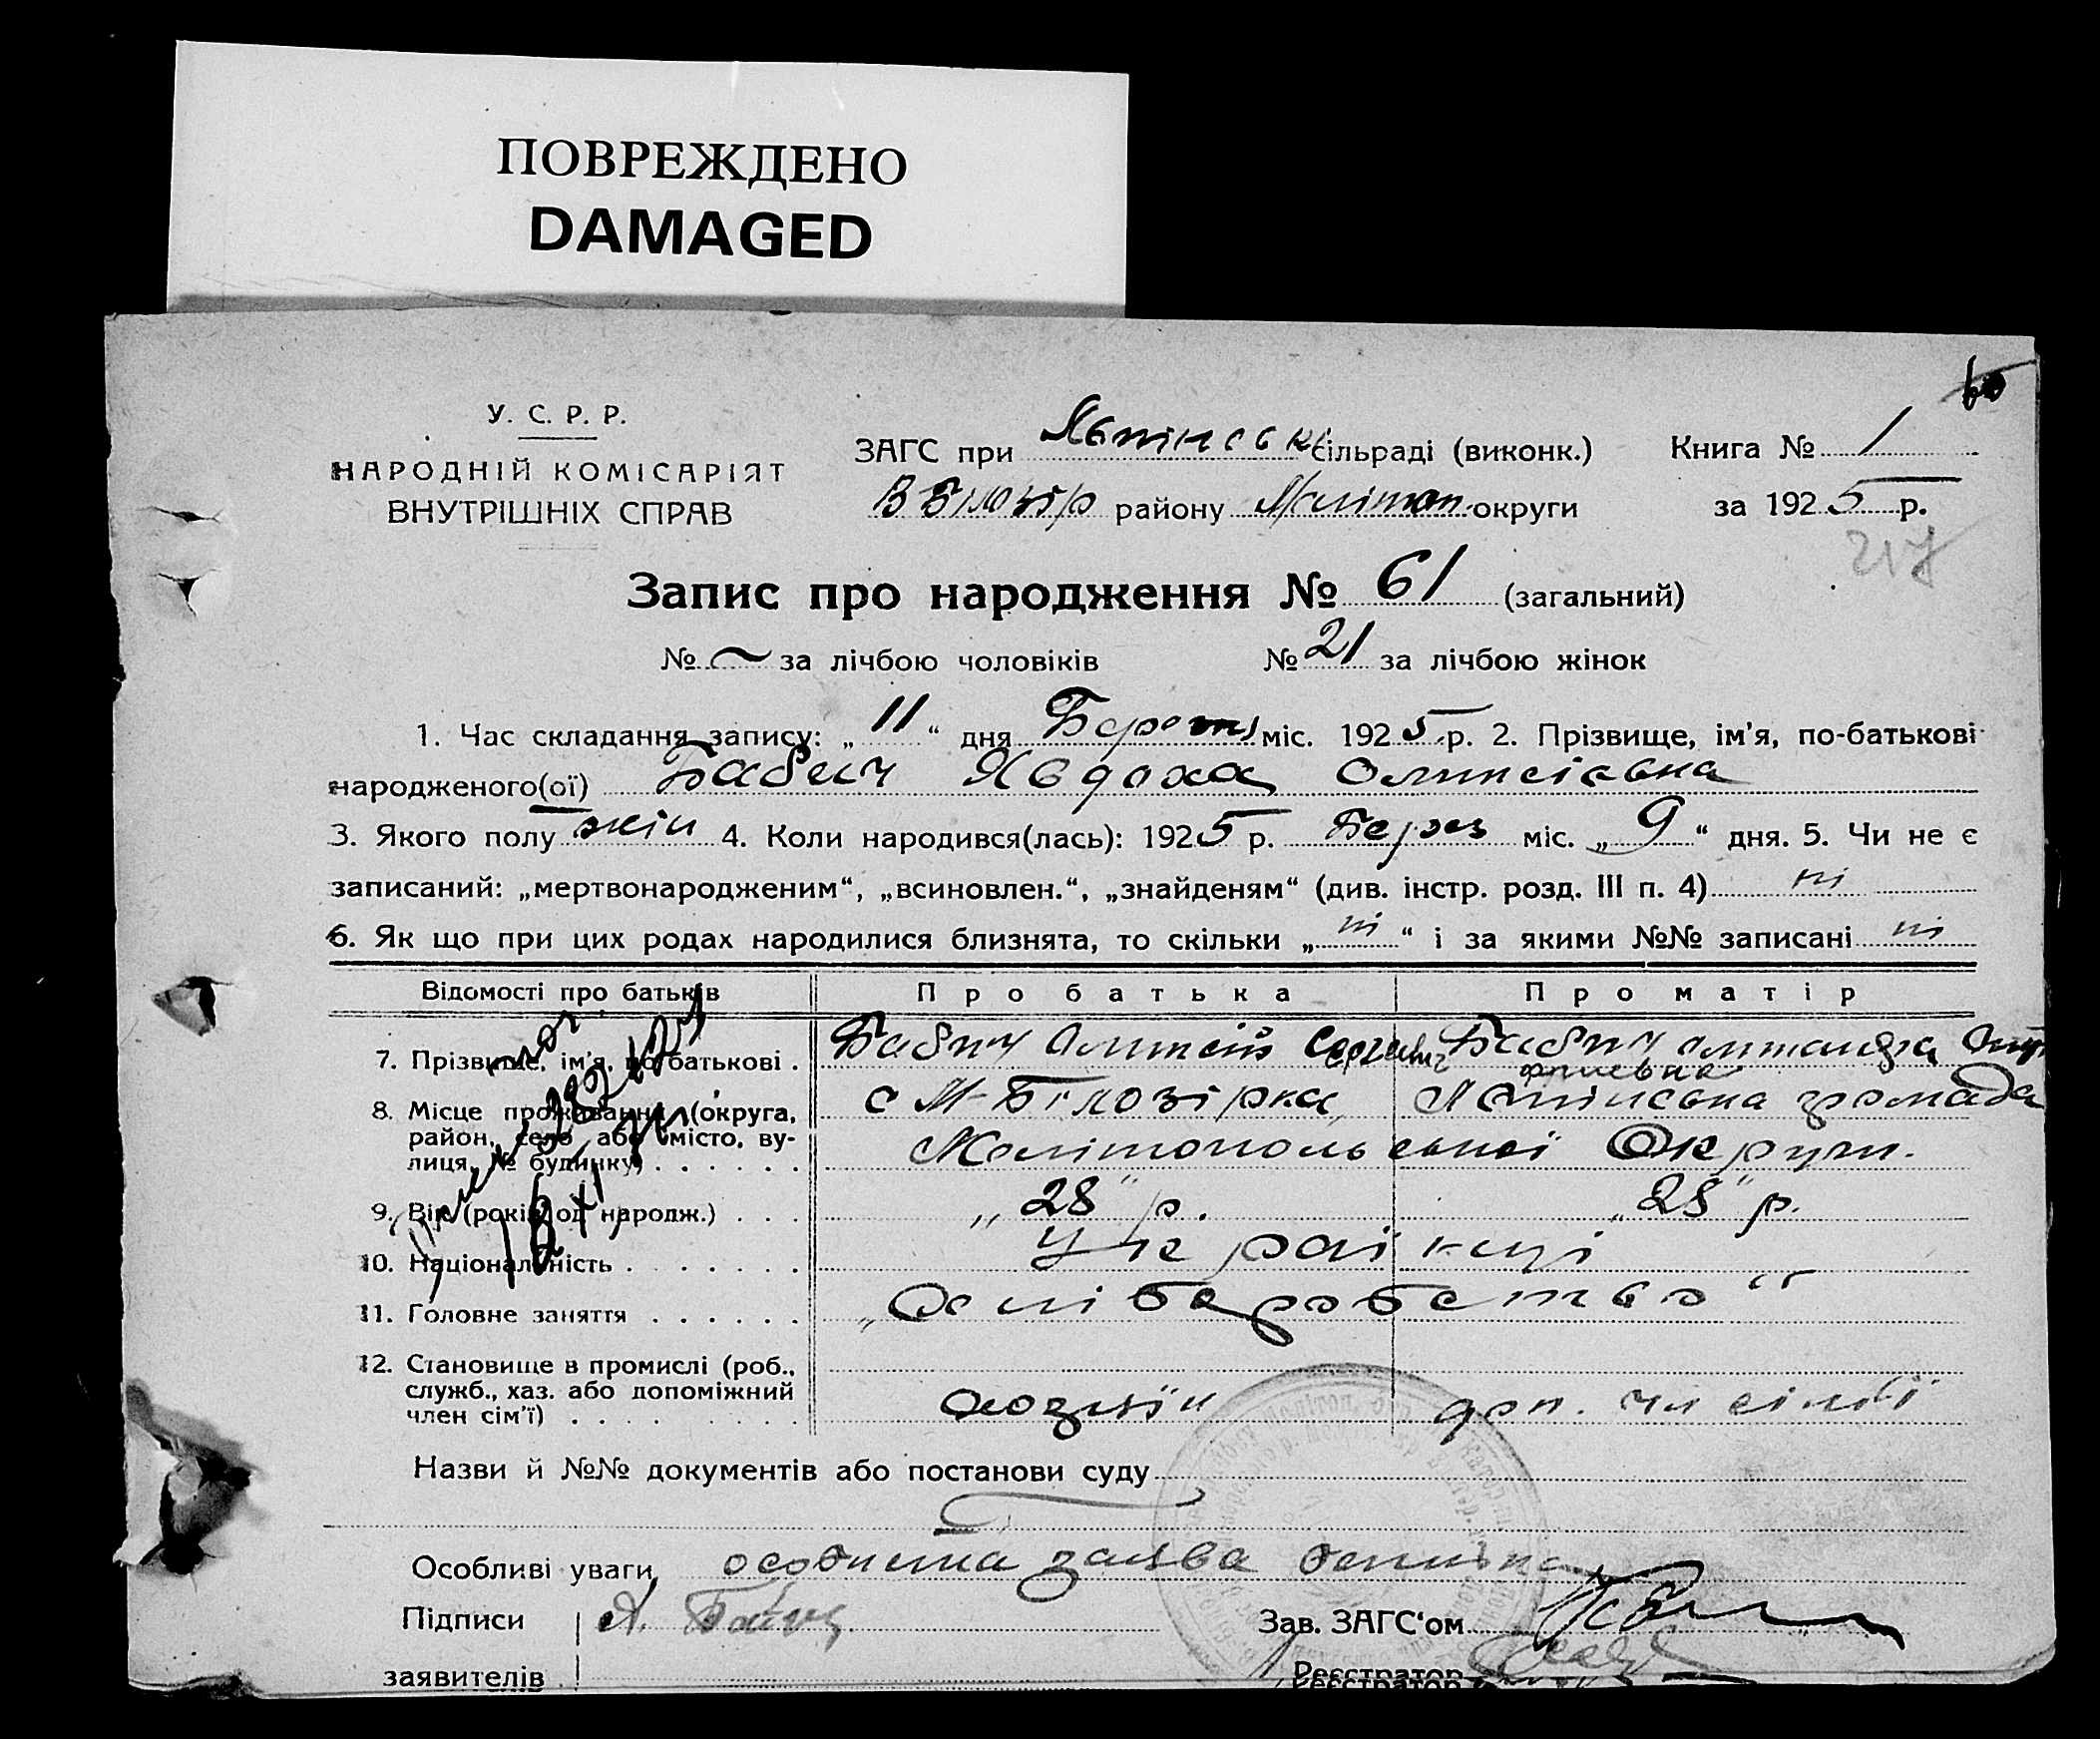 ПОВРЕЖДЕНО
DAMAGED
У. С. Р. Р.
НАРОДНІЙ КОМІСАРІЯТ
ВНУТРІШНІХ СПРАВ
ЗАГС при сільраді (виконк.)
В Білозір району Мелітоп. округи
Книга № 1
за 1925 р.
217
Запис про народження № 61 (загальний)
№ — за лічбою чоловіків № 21 за лічбою жінок
1. Час складання запису: „11“ дня міс. 1925 р. 2. Прізвище, ім'я, по-батькові
народженого(ої) Бабич Явдоха Олексіевна
3. Якого полу жін 4. Коли народився(лась): 1925 р. Берез міс. „9“ дня. 5. Чи не є
записаний: „мертвонародженим“, „всиновлен.“, „знайденям“ (див. інстр. розд. III п. 4) ні
6. Як що при цих родах народилися близнята, то скільки „ні“ і за якими №№ записані ні
Відомості про батьків Про батька Про матір
7. Прізвище, ім'я, по батькові . Бабич Олексій Бабич
8. Місце проживання (округа, с М-Білозірка, громада
район, село або місто, ву-
лиця, № будинку) . . . . . . Мелітопольської Округи.
9. Вік (років од народж.) . . . „28“ р. „28“ р.
10. Національність . . . . . . . Українці
11. Головне заняття . . . . . . „
12. Становище в промислі (роб.,
служб., хаз. або допоміжний
член сім'ї) . . . . . . . . хозяїн доп. чл сімьї
Назви й №№ документів або постанови суду
Особливі уваги особиста заява
Підписи А. Бабич Зав. ЗАГС'ом
заявителів Реєстратор